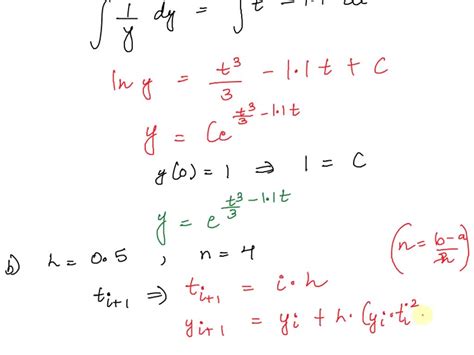 ∫ 1/y dy = ∫ t - 1.1 dt
ln y = t³/3 - 1.1t + C
y = Ce^(t³/3 - 1.1t)
y(0) = 1 ⇒ 1 = C
y = e^(t³/3 - 1.1t)
b) h = 0.5 , n = 4 (n = b-a/h)
t_{i+1} ⇒ t_{i+1} = i·h
y_{i+1} = y_i + h·(y_i·t_i² ·